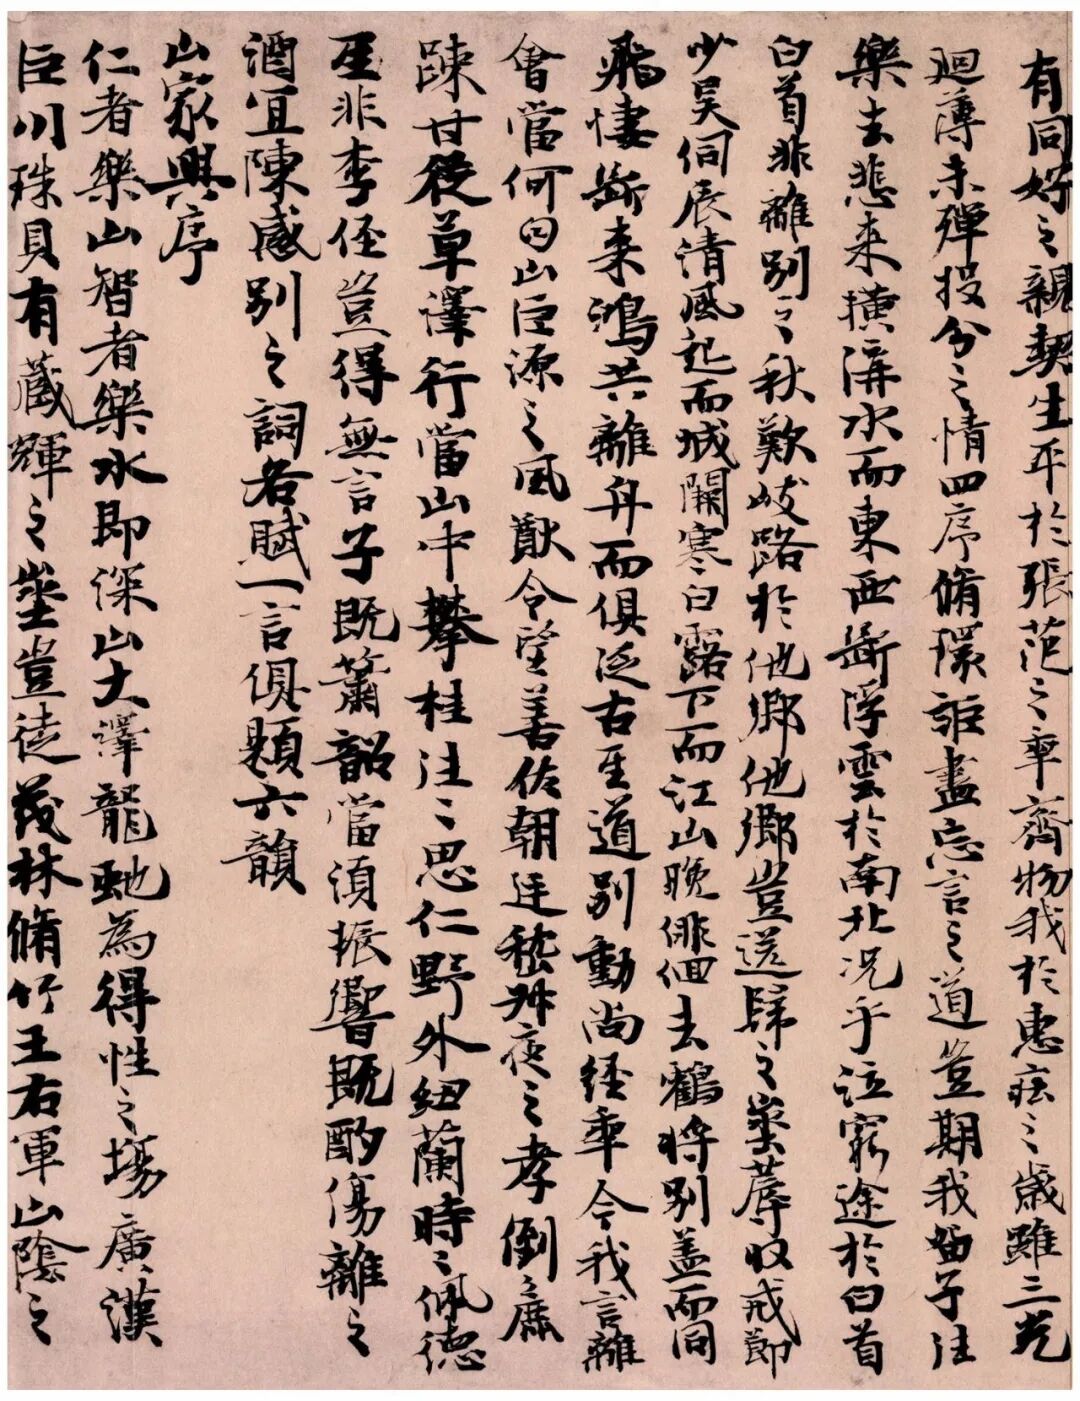 有同好之親契生平於張范之年齊物我於惠莊之歲雖三光
廻薄未殫投分之情四序脩環詎盡忘言之道豈期我留子往
樂去悲来橫溝水而東西断浮雲於南北况乎泣窮途於白首
白首非離別之秋歎岐路於他鄉他鄉豈送歸之埊蓐收戒節
少昊伺辰清風起而城闕寒白露下而江山晚徘徊去鶴将別盖而同
飛悽断来鴻共離舟而俱泛古𤯔道別動尚經年今我言離
會當何日山巨源之風猷令望善佐朝廷嵇叔夜之孝倒麁
踈甘從草澤行當山中攀桂往々思仁野外紉蘭時々佩德
𤯔非李侄豈得無言子既簫韶當湏振響既酌傷離之
酒宜陳感別之詞各賦一言俱題六韻
山家興序
仁者樂山智者樂水即深山大澤龍虵為得性之場廣漢
巨川珠貝有藏輝之埊豈徒茂林脩竹王右軍山陰之